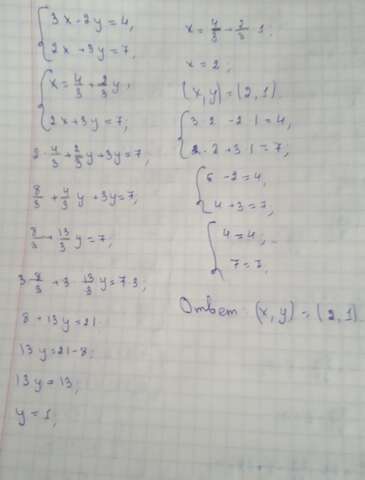 3x - 2y = 4,
2x + 3y = 7,
x = 4/3 + 2/3 y,
2x + 3y = 7;
2 · 4/3 + 2/3 y + 3y = 7;
8/3 + 4/3 y + 3y = 7;
8/3 + 13/3 y = 7;
3 · 8/3 + 3 · 13/3 y = 7 · 3;
8 + 13y = 21
13y = 21 - 8;
13y = 13;
y = 1;
x = 4/3 + 2/3 · 1;
x = 2;
(x, y) = (2, 1)
3 · 2 - 2 · 1 = 4,
2 · 2 + 3 · 1 = 7;
6 - 2 = 4,
4 + 3 = 7,
4 = 4;
7 = 7,
Ответ: (x, y) = (2, 1)